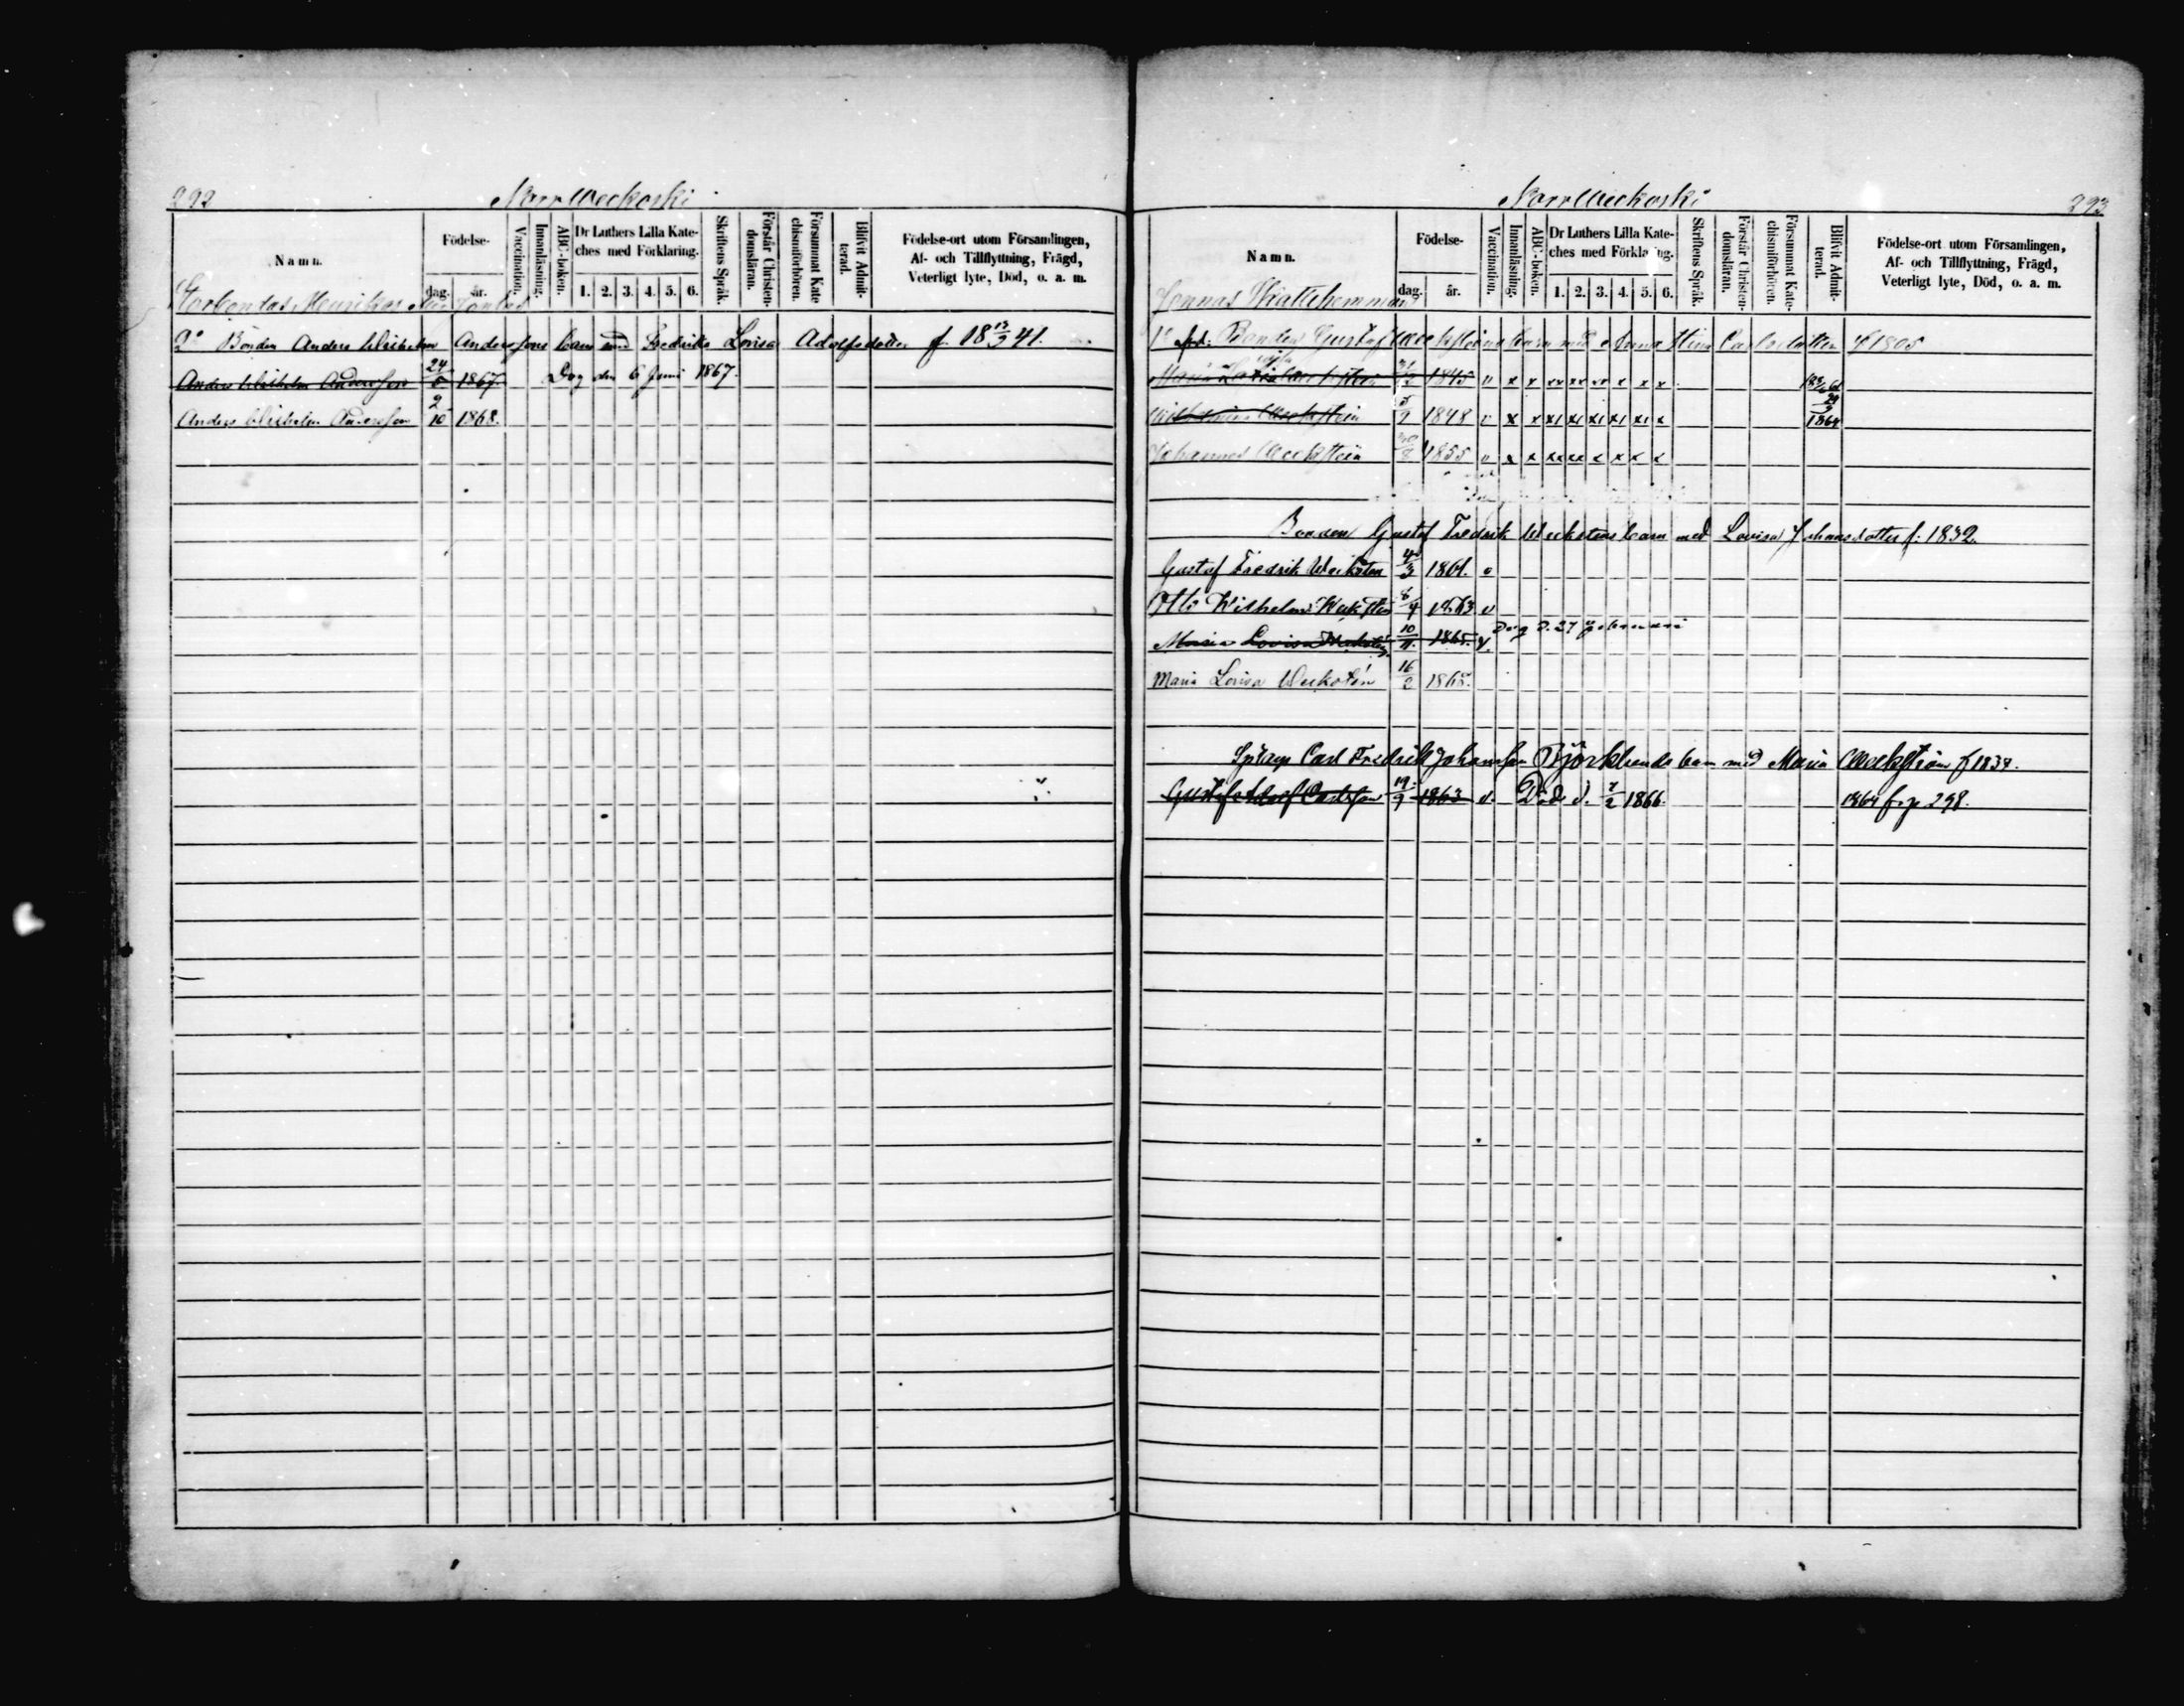 292
Norr Weckoski
Namn.
Födelse-
dag.
år.
Vaccination.
Innanläsning.
ABC-boken.
Dr Luthers Lilla Kate-
ches med Förklaring.
1. 2. 3. 4. 5. 6.
Skriftens Språk.
Förstår Christen-
domsläran.
Försummat Kate
chismiförhören.
Blifvit Admit-
terad.
Födelse-ort utom Församlingen,
Af- och Tillflyttning, Frägd,
Veterligt lyte, Död, o. a. m.
2o Bonden Anders Wilhelm Anderssons barn med Fredrika Lovisa Adolfsdotter f. 18 13/9 41.
Anders Wilhelm Andersson 24/5 1867. Dog den 6 Juni 1867.
Anders Wilhelm Andersson 2/10 1868.
Norr Weckoski
293
Namn.
Födelse-
dag.
år.
Vaccination.
Innanläsning.
ABC-boken.
Dr Luthers Lilla Kate-
ches med Förklaring.
1. 2. 3. 4. 5. 6.
Skriftens Språk.
Förstår Christen-
domsläran.
Försummat Kate-
chismiförhören.
Blifvit Admit-
terad.
Födelse-ort utom Församlingen,
Af- och Tillflyttning, Frägd,
Veterligt lyte, Död, o. a. m.
Jennas Skattehemman
1o Bonden Gustaf Wecksteins barn med Anna Stina Carlsdotter f 1805
Maria 1845 v x x xx xx xx x x x
Weckstein 5/9 1848 v x x x1 x1 x1 x1 x1 x 1864
Johannes Weckstein 1855 v x x xx xx x x x x
Bonden Gustaf Fredrik Wecksténs barn med Lovisa Johansdotter f. 1832.
Gustaf Fredrik Weckstén 1861.
Otto Wilhelm Weckstén 1863 v
Maria Lovisa Weckstén 10/11 1865. v. Dog d. 27 Februari
Maria Lovisa Weckstén 16/2 1868.
Carl Fredrik Johansson Björklunds barn med Maria Weckström f 1834.
Gustaf Adolf Carlsson 19/9 1863 v. Död d. 7/2 1866. 1864 fr. p 298.